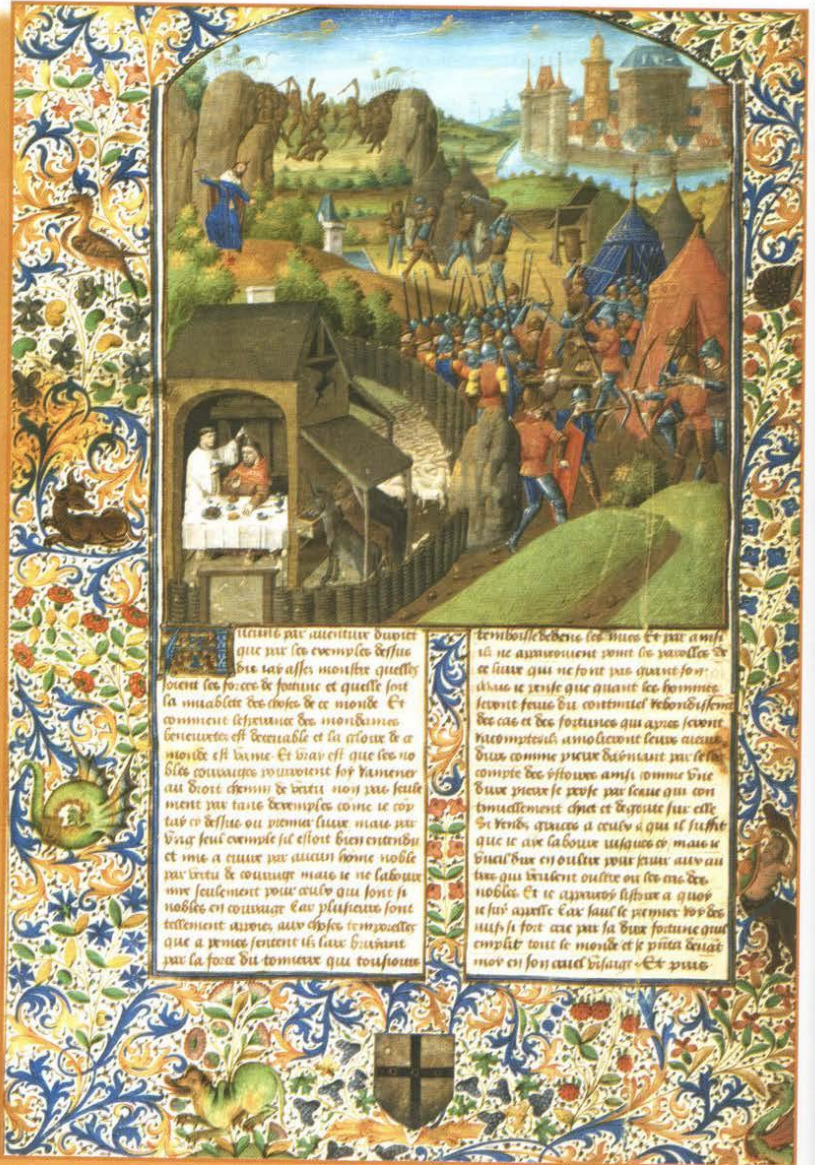 Aucuns par auenture diroient
que par les exemples dessus
dis iay assez monstre quelles
soient les forces de fortune et quelle soit
la muablete des choses de ce monde Et
comment lesperance des mondaines
beneuretes est deceuable et la gloire de ce
monde est vaine Et vray est que les no
bles couraiges pourroient soy ramener
au droit chemin de vertu non pas seule
ment par tans dexemples come ie cop
tay cy dessus ou premier liure mais par
vng seul exemple sil estoit bien entendu
et mis a euure par aucun home noble
par vertu de couraige mais ie ne laboure
mie seulement pour ceulx qui sont si
nobles en couraige Car plusieurs sont
tellement aux choses temporelles
que a peines sentent ilz lair bruiant
par la force du tonnerre qui tousiours
dedens les nues Et par ainsi
ilz ne apparcoiuent point les parolles de
ce liure qui ne font pas grant son
Mais ie pense que quant les hommes
seront feruz du continuel rebondissemt
des cas et des fortunes qui apres seront
racomptes ilz amolieront leurs cueurs
durs comme pierre daymant par le
compte des ystoires ainsi comme vne
dure pierre se perse par leaue qui con
tinuellement chiet et degoute sur elle
Si rends graces a ceulx a qui il suffit
que ie aye laboure iusques cy mais ie
vueil dire en oultre pour seruir aux au
tres qui veulent oultre ouir les cas des
nobles Et ie apparcoy listoire a quoy
ie suy appelle Car saul le premier roy des
iuifz si fort crie par sa dure fortune quil
emplit tout le monde et se pnta deuat
moy en son cruel visaige Et puis